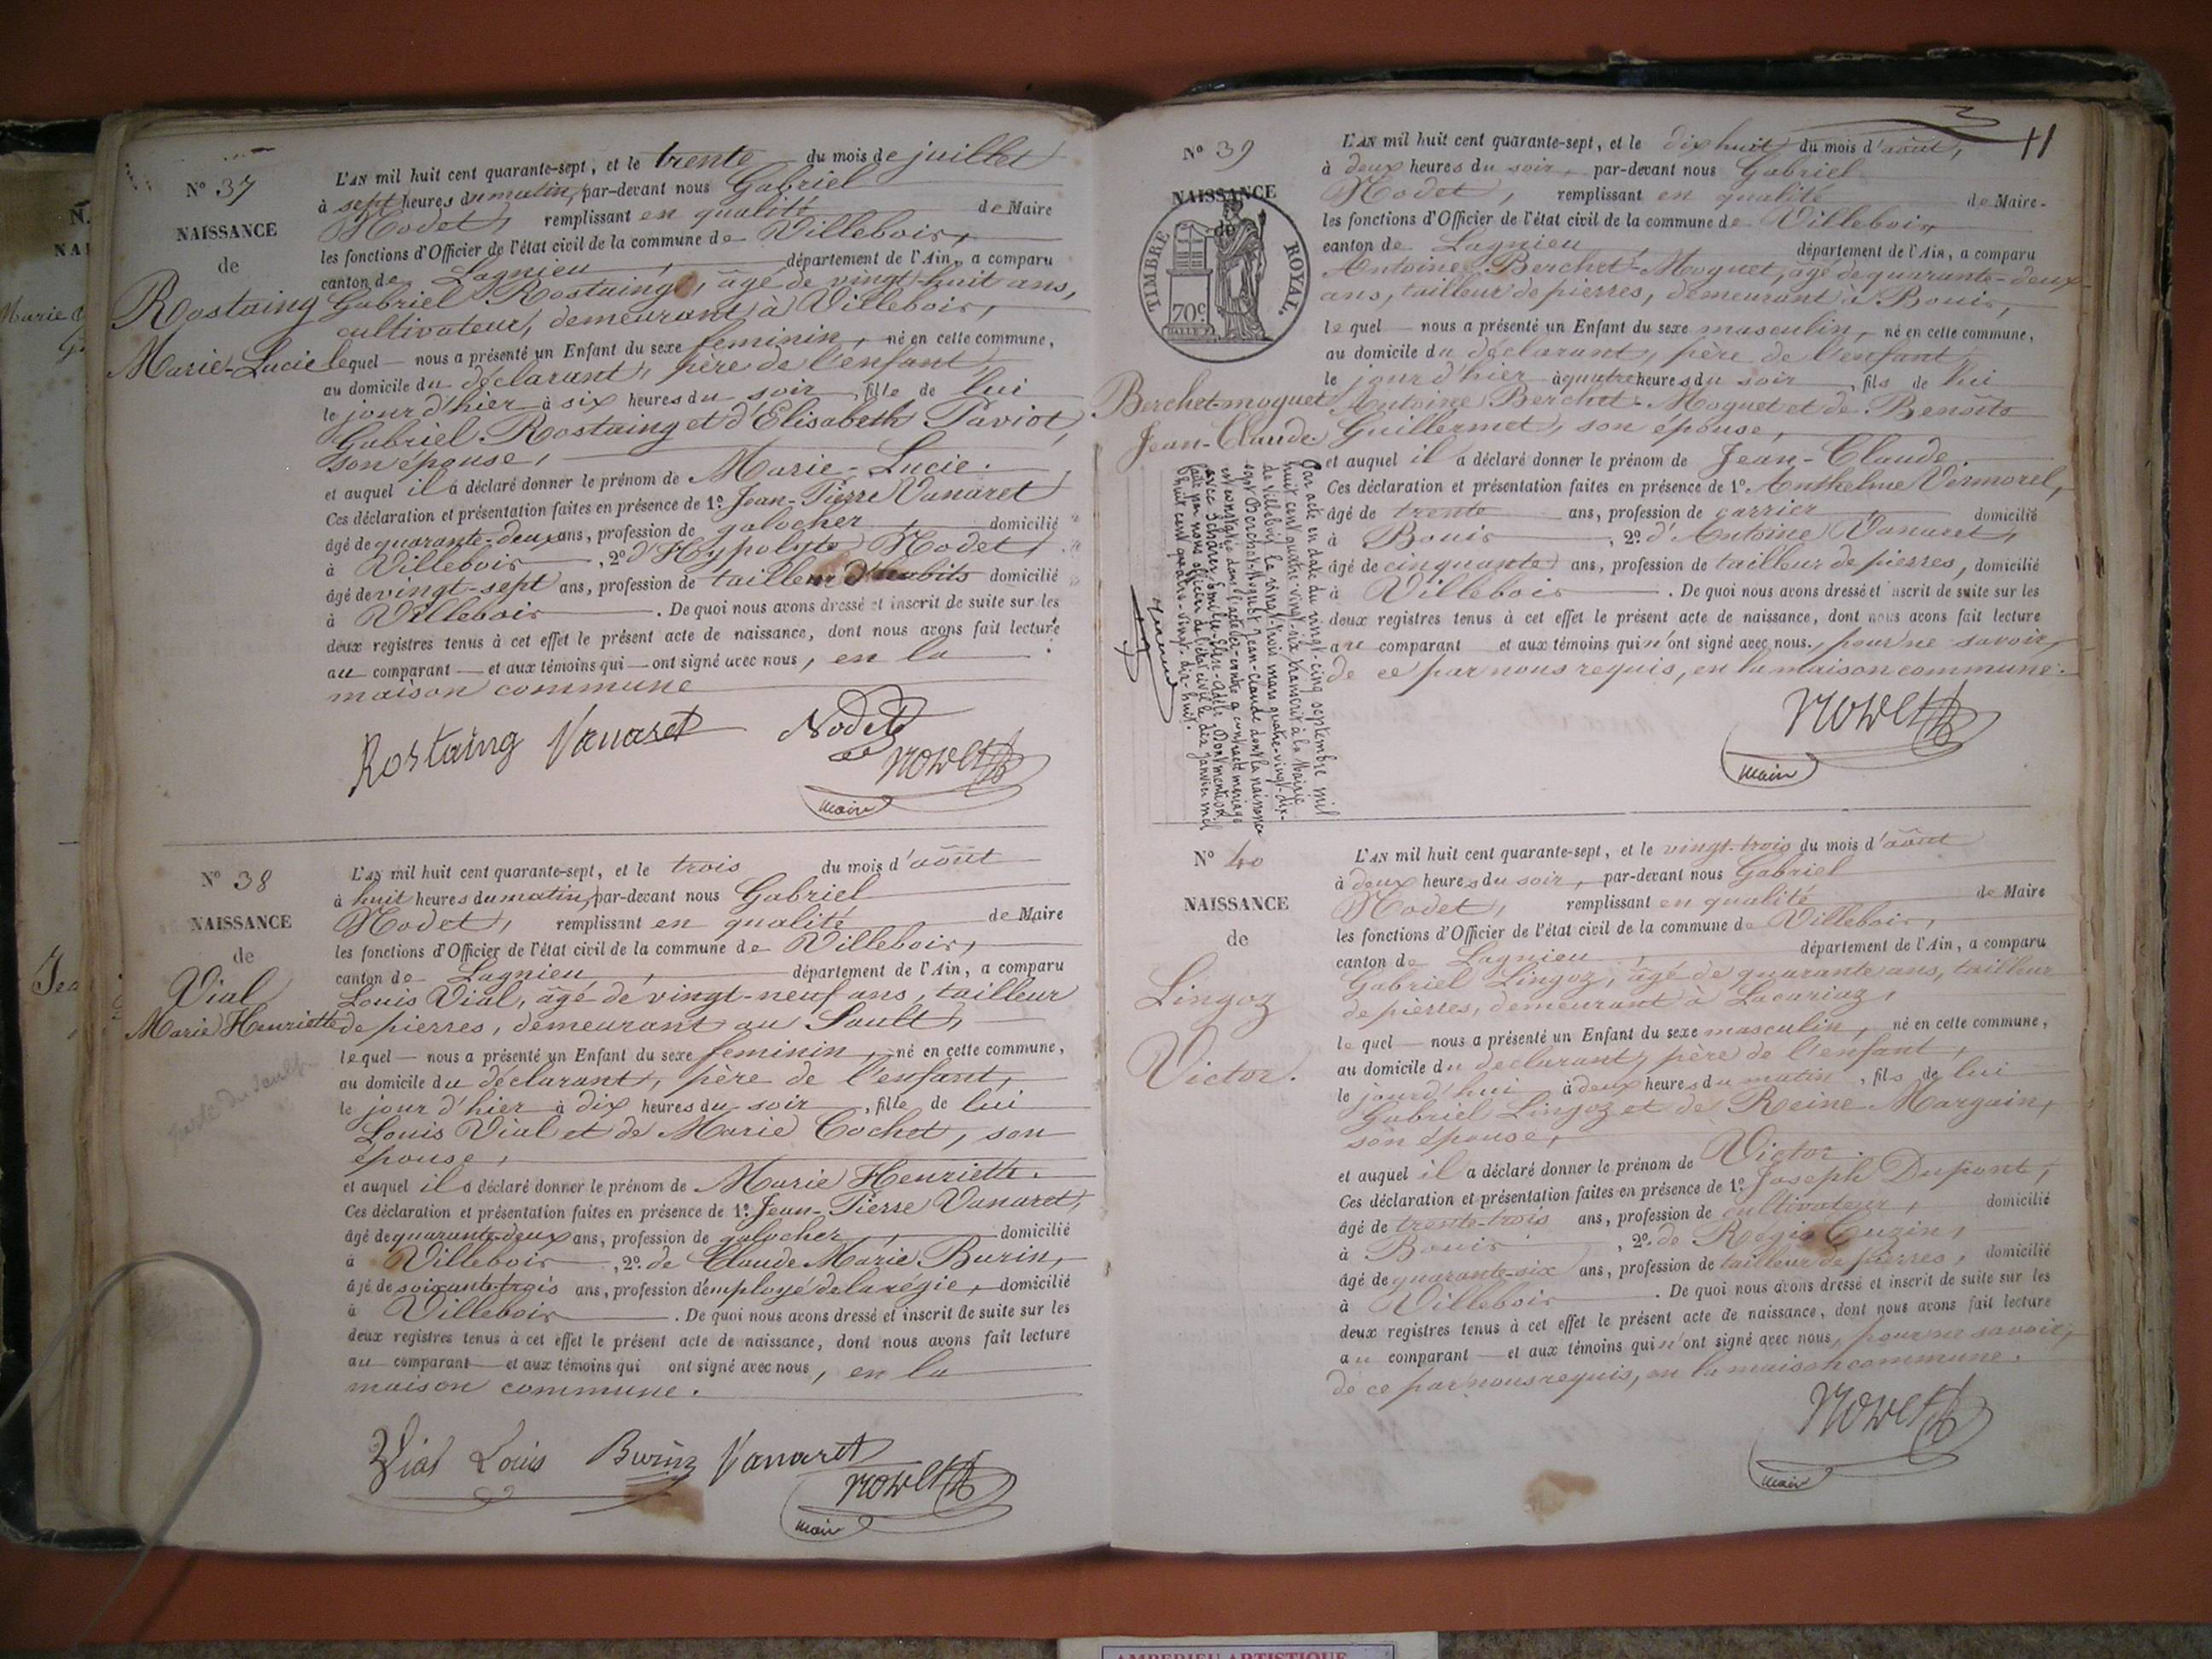 N° 37
NAISSANCE
de
Rostaing
Marie-Lucie
L'AN mil huit cent quarante-sept, et le trente du mois de juillet
à sept heures du matin, par-devant nous Gabriel
Nodet, remplissant en qualité de Maire
les fonctions d'Officier de l'état civil de la commune de Villebois,
canton de Lagnieu, département de l'Ain, a comparu
Gabriel Rostaing, âgé de vingt-huit ans,
cultivateur, demeurant à Villebois,
lequel nous a présenté un Enfant du sexe feminin, né en cette commune,
au domicile du déclarant, père de l'enfant,
le jour d'hier à six heures du soir, fille de lui
Gabriel Rostaing et d'Elisabeth Paviot,
son épouse,
et auquel il a déclaré donner le prénom de Marie-Lucie.
Ces déclaration et présentation faites en présence de 1º Jean-Pierre Vanaret
âgé de quarante-deux ans, profession de galocher, domicilié
à Villebois, 2º d'Hypolyte Nodet,
âgé de vingt-sept ans, profession de tailleur d'habits domicilié
à Villebois. De quoi nous avons dressé et inscrit de suite sur les
deux registres tenus à cet effet le présent acte de naissance, dont nous avons fait lecture
au comparant et aux témoins qui ont signé avec nous, en la
maison commune
Rostaing Vanaret Nodet
Nodet
maire
N° 38
NAISSANCE
de
Vial
Marie Henriette
L'AN mil huit cent quarante-sept, et le trois du mois d'août
à huit heures du matin, par-devant nous Gabriel
Nodet, remplissant en qualité de Maire
les fonctions d'Officier de l'état civil de la commune de Villebois,
canton de Lagnieu, département de l'Ain, a comparu
Louis Vial, âgé de vingt-neuf ans, tailleur
de pierres, demeurant au Sault,
lequel nous a présenté un Enfant du sexe feminin, né en cette commune,
au domicile du déclarant, père de l'enfant,
le jour d'hier à dix heures du soir, fille de lui
Louis Vial et de Marie Cochet, son
épouse,
et auquel il a déclaré donner le prénom de Marie Henriette.
Ces déclaration et présentation faites en présence de 1º Jean-Pierre Vanaret,
âgé de quarante-deux ans, profession de galocher, domicilié
à Villebois, 2º de Claude Marie Burin,
âgé de soixante-trois ans, profession d'employé de la régie, domicilié
à Villebois. De quoi nous avons dressé et inscrit de suite sur les
deux registres tenus à cet effet le présent acte de naissance, dont nous avons fait lecture
au comparant et aux témoins qui ont signé avec nous, en la
maison commune.
Vial Louis Burin Vanaret
Nodet
maire
11
N° 39
NAISSANCE
de
TIMBRE ROYAL
70c
Berchet-moquet
Jean-Claude.
L'AN mil huit cent quarante-sept, et le dix huit du mois d'août,
à deux heures du soir, par-devant nous Gabriel
Nodet, remplissant en qualité de Maire
les fonctions d'Officier de l'état civil de la commune de Villebois
canton de Lagnieu, département de l'Ain, a comparu
Antoine Berchet-Moquet, âgé de quarante-deux
ans, tailleur de pierres, demeurant à Bouis,
lequel nous a présenté un Enfant du sexe masculin, né en cette commune,
au domicile du déclarant, père de l'enfant,
le jour d'hier à quatre heures du soir, fils de lui
Antoine Berchet-Moquet et de Benoîte
Guillermet, son épouse,
et auquel il a déclaré donner le prénom de Jean-Claude.
Ces déclaration et présentation faites en présence de 1º Anthelme Vermorel,
âgé de trente ans, profession de carrier, domicilié
à Bouis, 2º d'Antoine Vanaret,
âgé de cinquante ans, profession de tailleur de pierres, domicilié
à Villebois. De quoi nous avons dressé et inscrit de suite sur les
deux registres tenus à cet effet le présent acte de naissance, dont nous avons fait lecture
au comparant et aux témoins qui n'ont signé avec nous, pour ne savoir,
de ce par nous requis, en la maison commune.
Nodet
maire
Par acte en date du vingt-cinq septembre mil
huit cent quatre-vingt-six transcrit à la Mairie
de Villebois, le vingt-trois mars quatre-vingt-dix-
sept Berchet-Moquet Jean-Claude dont la naissance
est constatée dans l'acte ci-contre a contracté mariage
avec Schärer Emilie-Elise-Adèle. Dont mention
faite par nous officier de l'état civil le dix janvier mil
huit cent quatre-vingt-dix-huit.
N° 40
NAISSANCE
de
Lingoz
Victor.
L'AN mil huit cent quarante-sept, et le vingt-trois du mois d'août
à deux heures du soir, par-devant nous Gabriel
Nodet, remplissant en qualité de Maire
les fonctions d'Officier de l'état civil de la commune de Villebois,
canton de Lagnieu, département de l'Ain, a comparu
Gabriel Lingoz, âgé de quarante ans, tailleur
de pierres, demeurant à Lacariaz,
lequel nous a présenté un Enfant du sexe masculin, né en cette commune,
au domicile du declarant, père de l'enfant,
le jourd'hui à deux heures du matin, fils de lui
Gabriel Lingoz et de Reine Margain,
son épouse,
et auquel il a déclaré donner le prénom de Victor.
Ces déclaration et présentation faites en présence de 1º Joseph Dupont,
âgé de trente-trois ans, profession de cultivateur, domicilié
à Bouis, 2º de Régis Cuzin,
âgé de quarante-six ans, profession de tailleur de pierres, domicilié
à Villebois. De quoi nous avons dressé et inscrit de suite sur les
deux registres tenus à cet effet le présent acte de naissance, dont nous avons fait lecture
au comparant et aux témoins qui n'ont signé avec nous, pour ne savoir,
de ce par nous requis, en la maison commune.
Nodet
maire
AMBERIEU ARTISTIQUE